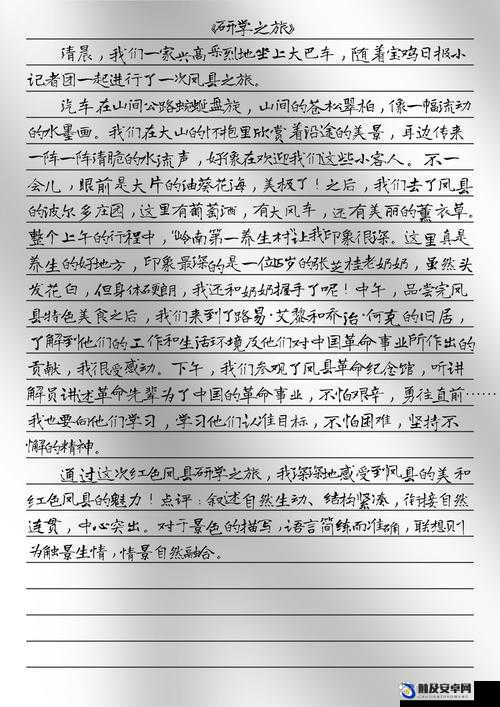 《研学之旅》
清晨，我们一家兴高采烈地坐上大巴车，随着宝鸡日报小
记者团一起进行了一次凤县之旅。
汽车在山间公路蜿蜒盘旋，山间的苍松翠柏，像一幅流动
的水墨画。我们在大山的怀抱里欣赏着沿途的美景，耳边传来
一阵一阵清脆的水流声，好像在欢迎我们这些小客人。不一
会儿，眼前是大片的油葵花海，美极了！之后，我们去了凤县
的波尔多庄园，这里有葡萄酒，有大风车，还有美丽的薰衣草。
整个上午的行程中，“岭南第一养生村”让我印象很深。这里真是
养生的好地方，印象最深的是一位岁的张芝桂老奶奶，虽然头
发花白，但身体硬朗，我还和奶奶握手了呢！中午，品尝完凤
县特色美食之后，我们来到了路易·艾黎和乔治·何克的旧居，
了解到他们的工作和生活环境及他们对中国革命事业所作出的
贡献，我很受感动。下午，我们参观了凤县革命纪念馆，听讲
解员讲述革命先辈为了中国的革命事业，不怕艰辛，勇往直前……
我也要向他们学习，学习他们认准目标，不怕困难，坚持不
懈的精神。
通过这次红色凤县研学之旅，我深深地感受到凤县的美和
红色凤县的魅力！点评：叙述自然生动、结构紧凑，衔接自然
连贯，中心突出。对于景色的描写，语言简练而准确，联想则
为触景生情，情景自然融合。
触及安卓网